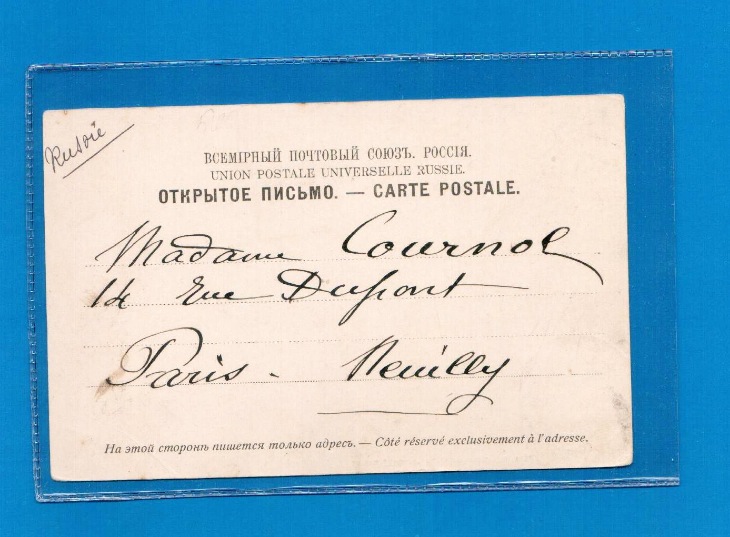 Russie
ВСЕМІРНЫЙ ПОЧТОВЫЙ СОЮЗЪ. РОССІЯ.
UNION POSTALE UNIVERSELLE RUSSIE.
ОТКРЫТОЕ ПИСЬМО. — CARTE POSTALE.
Madame Cournol
14 Rue Dupont
Paris - Neuilly
На этой сторонѣ пишется только адресъ. — Côté réservé exclusivement à l'adresse.